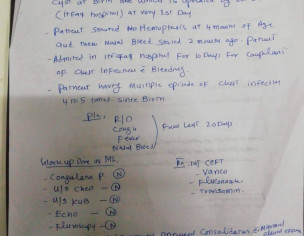 Cyst at Birth and which is operated by
(Itfaq Hospital) at very 1st Day
- Patient started Hemoptysis at 4 months of Age
and then Nasal Bleed started 2 months ago. Patient
- Admitted in Itfaq Hospital For 10 Days For Complaint
of Chest Infection & Bleeding.
- Patient having Multiple episode of Chest infection
4 to 5 times since Birth
P/C
R/D
Cough
Fever
Nasal Bleed
From Last 20 Days
Workup Done in
- Coagulation P. (N)
- U/S Chest - (N)
- U/S KUB - (N)
- Echo - (N)
- (N)
INJ CEFT
- Vanco
- Transamin.
Consolidation, & Normal